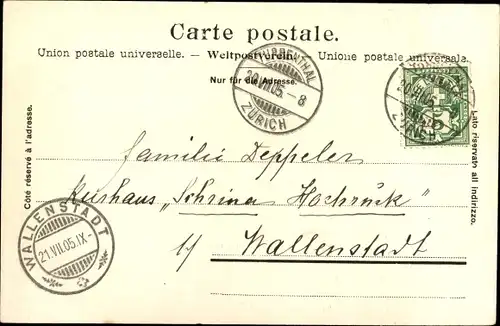 Carte postale.
Union postale universelle. – Weltpostverein. – Unione postale universale.
Nur für die Adresse.
Côté réservé à l'adresse.
Lato riservato all indirizzo.
20.VII.05. - 8
ZÜRICH
20.VII.05
Familie Deppeler
Kurhaus „Schrina Hochruck"
b/ Wallenstadt
WALLENSTADT
21.VII.05.IX-